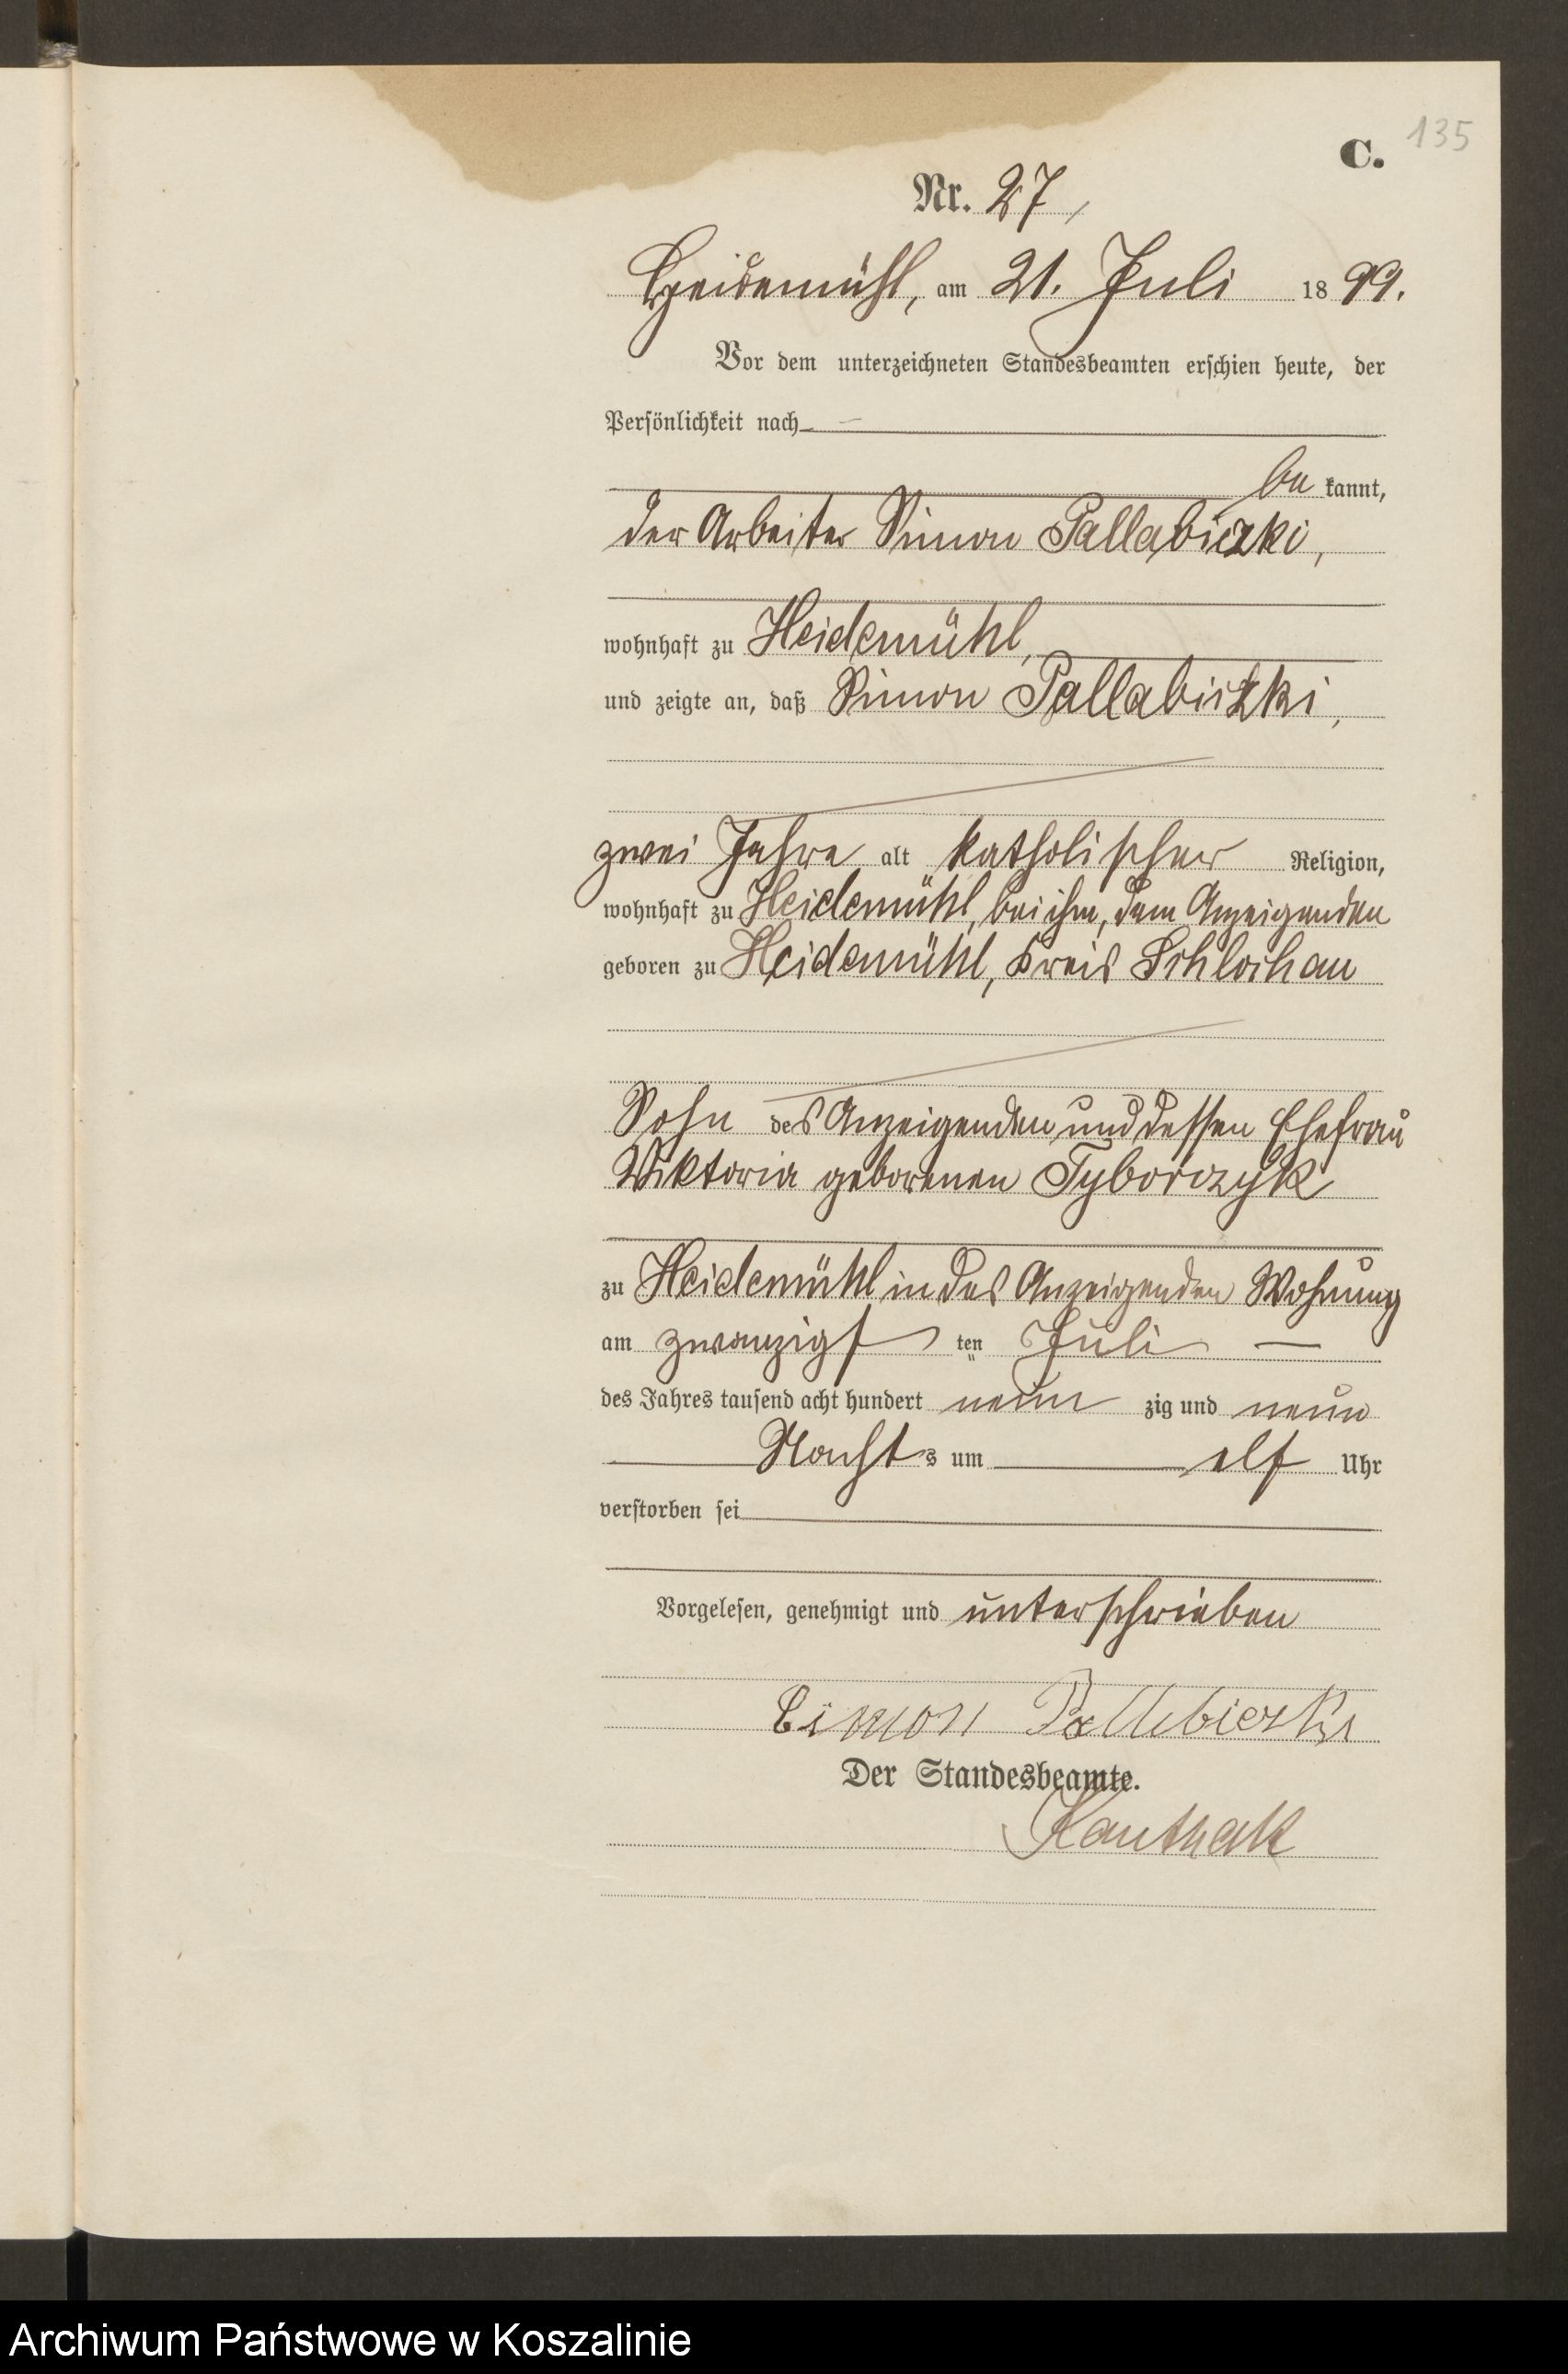 135
C.
Nr. 27,
Heidemühl, am 21. Juli 1899.
Vor dem unterzeichneten Standesbeamten erschien heute, der
Persönlichkeit nach
be kannt,
der Arbeiter Simon Pallabiczki,
wohnhaft zu Heidemühl,
und zeigte an, daß Simon Pallabiczki,
zwei Jahre alt katholischer Religion,
wohnhaft zu Heidemühl, bei ihm, dem Anzeigenden
geboren zu Heidemühl, Kreis Schlochau
Sohn des Anzeigenden und dessen Ehefrau
Wiktoria geborenen Tyborczyk
zu Heidemühl in des Anzeigenden Wohnung
am zwanzigsten Juli —
des Jahres tausend acht hundert neun zig und neun
Nachts um elf Uhr
verstorben sei
Vorgelesen, genehmigt und unterschrieben
Simon Pallebiczki
Der Standesbeamte.
Kanthak
Archiwum Państwowe w Koszalinie